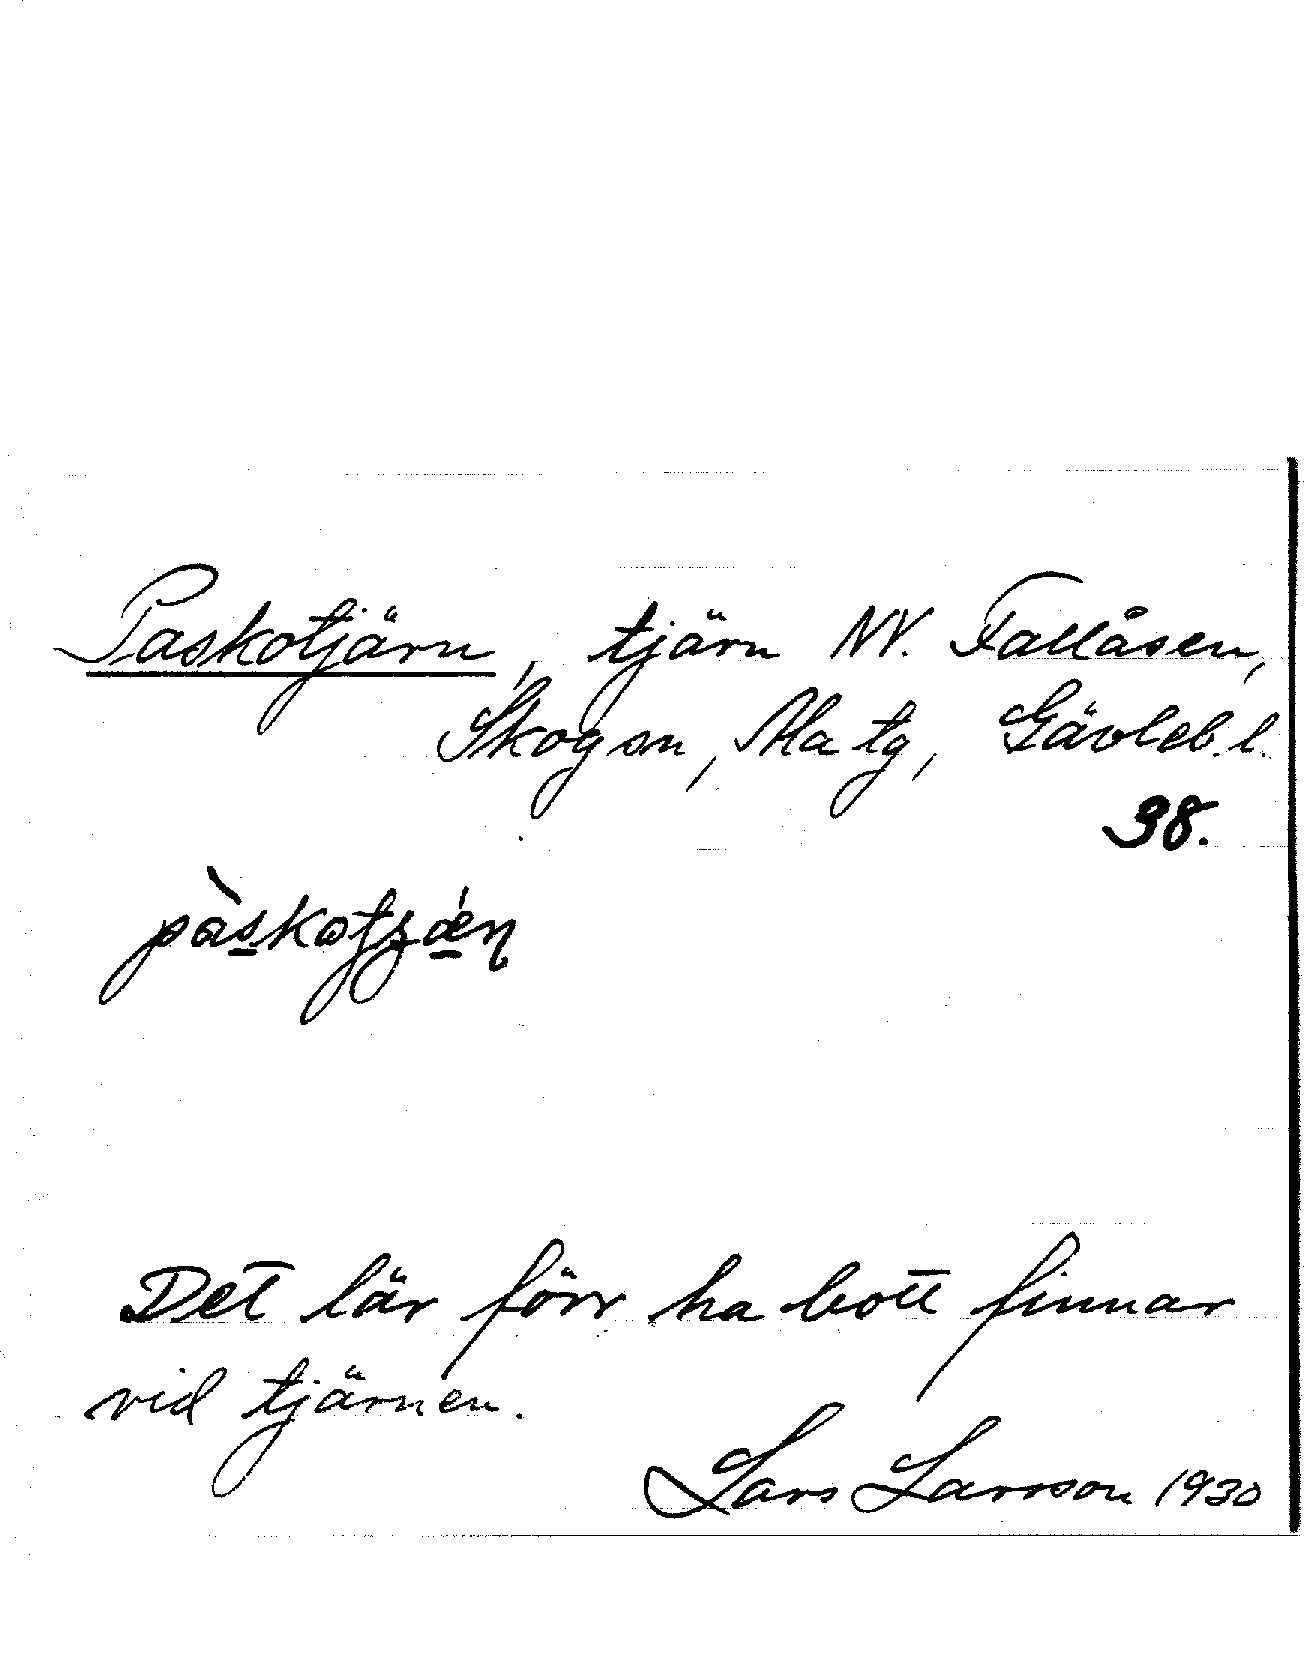 Paskotjärn, tjärn NV. Fallåsen,
Skogan, Ma tg, Gävleb. l.
38.
pàskotʒǽn
Det lär förr ha bott finnar
vid tjärnen.
Lars Larsson 1930